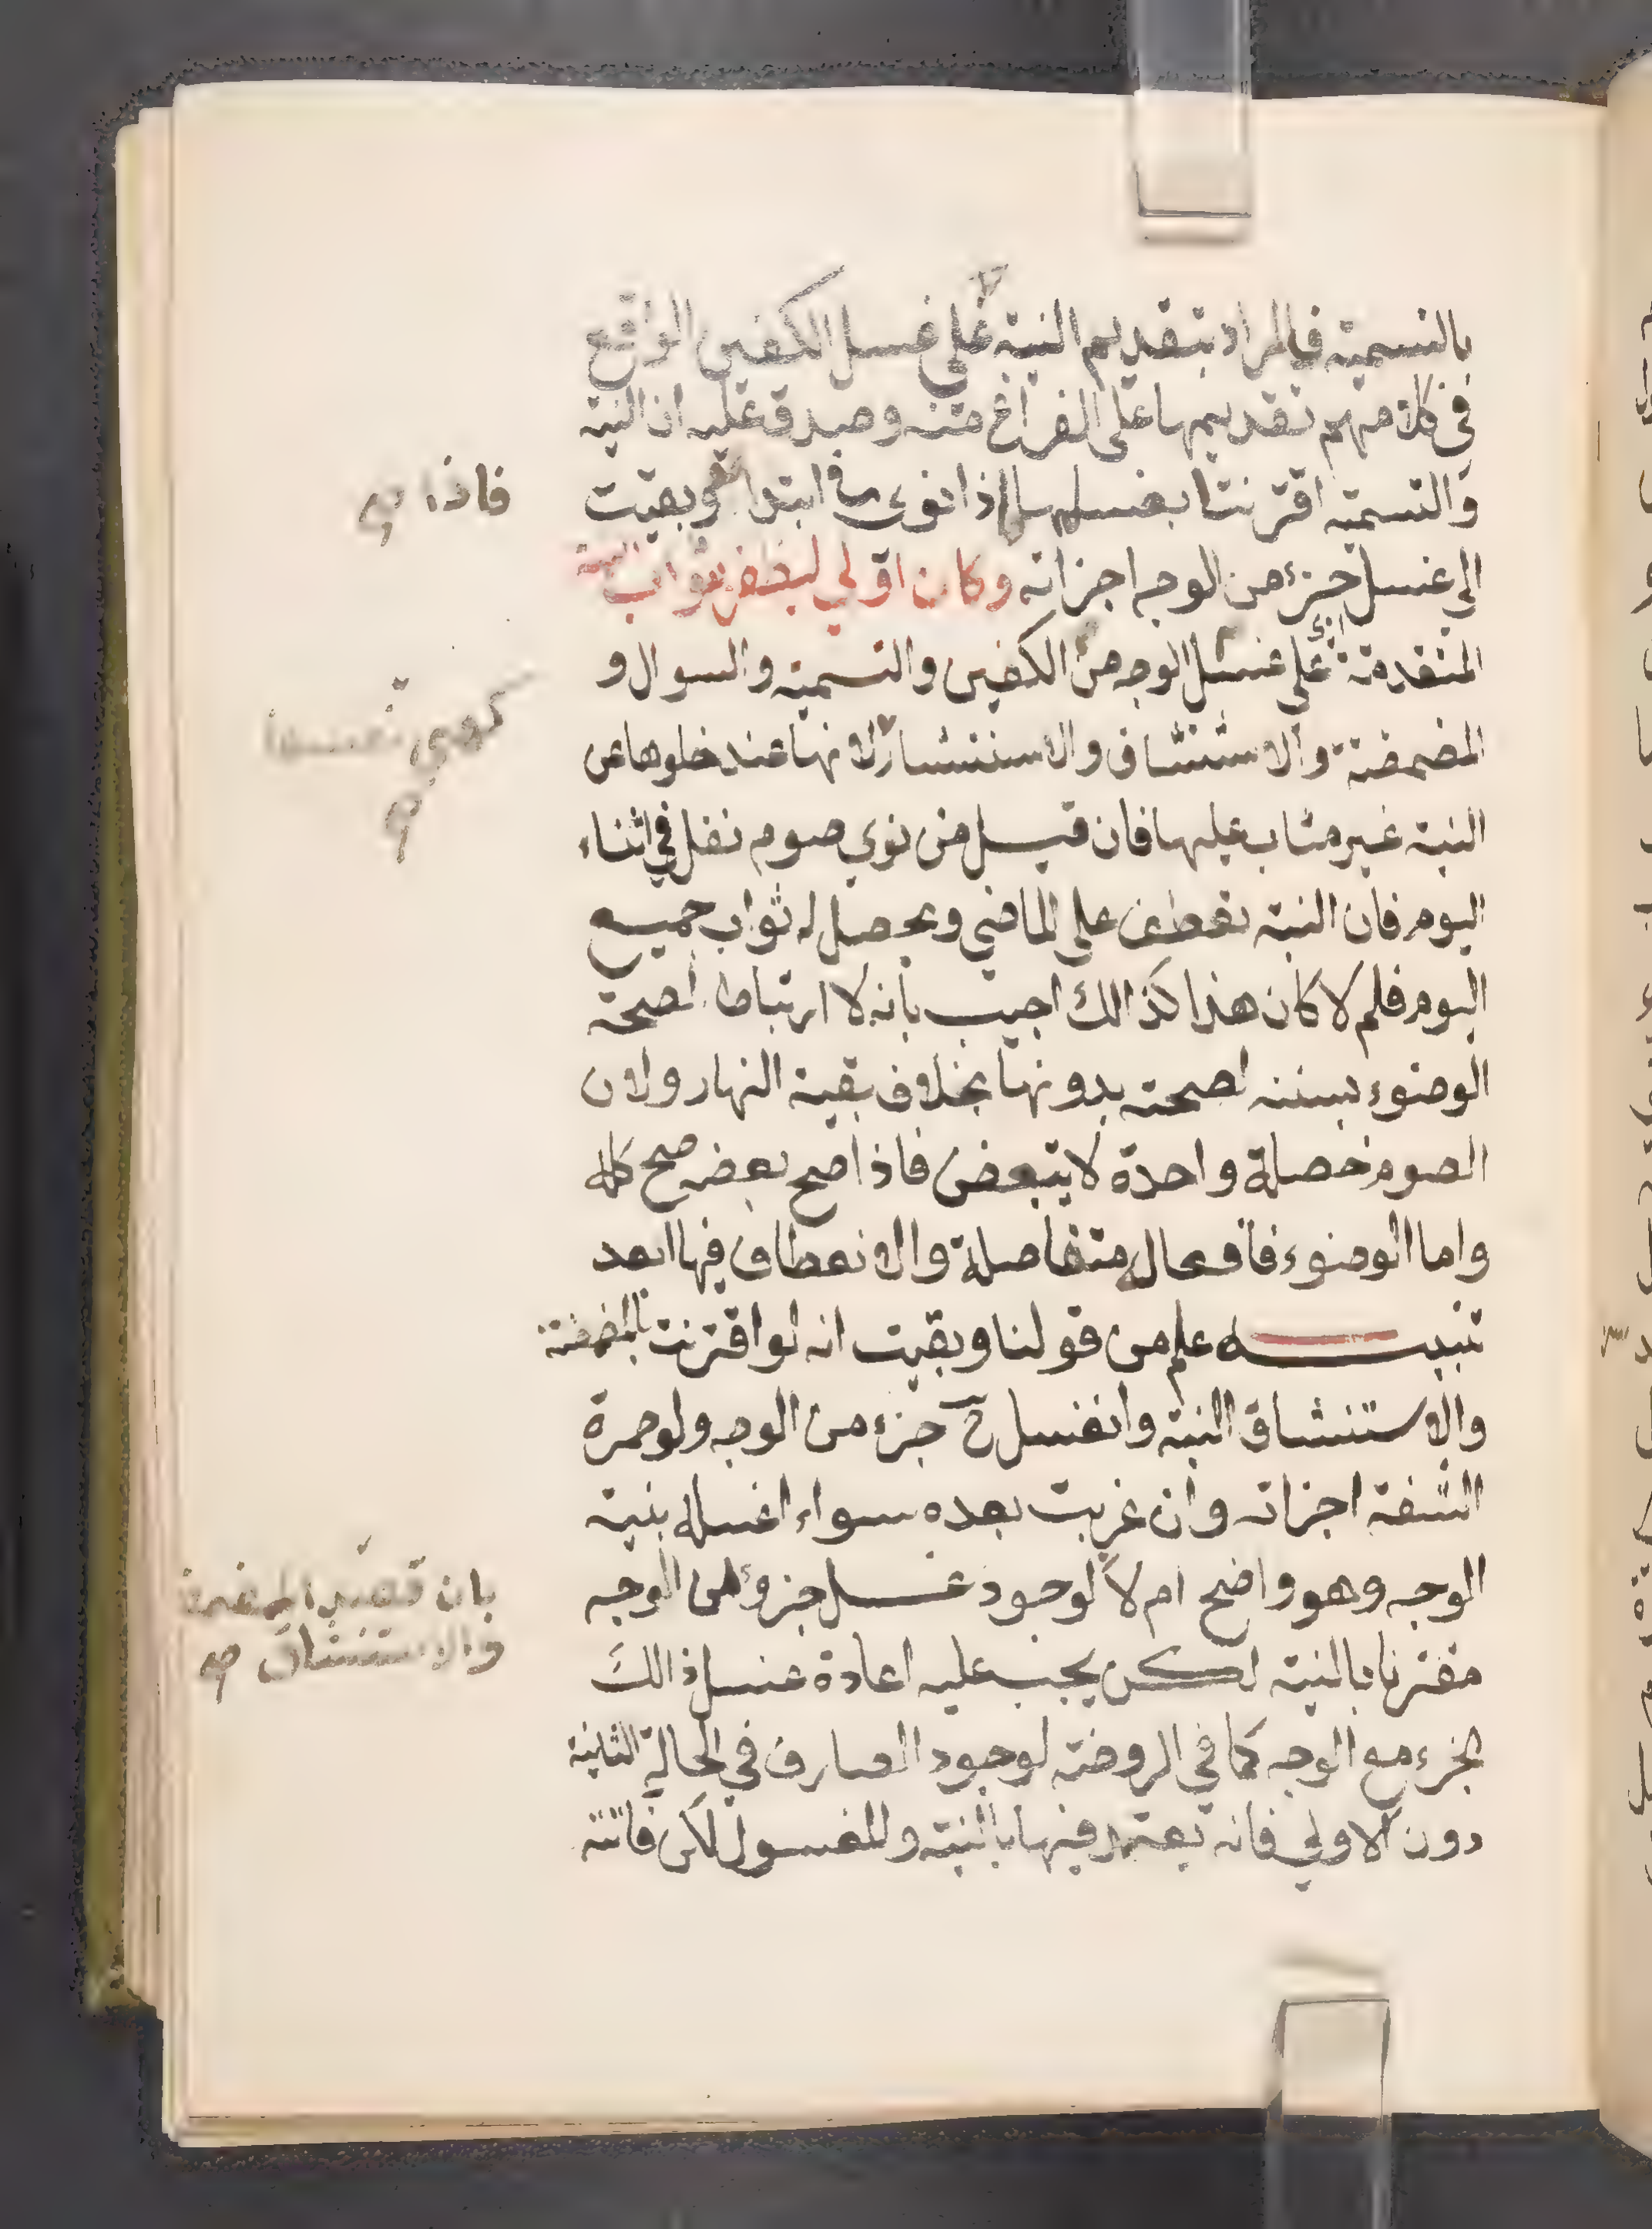 بالتسمية فالمراد بتقديم النية على غسل الكفين الواقع
فى كلامهم تقديمها على الفراغ منه وصدق عليه ان النية
والتسمية اقترنتا بغسل اذا نوى ابتدا وبقيت
فاذا صح
الى غسل جزء من الوجه اجزاته وكان اولي ثواب السنة
المتقدمة على غسل الوجه من الكفين والتسمية والسواك و
المضمضة والاستنشاق والاستنثار لانها عند خلوها عن
النية غير مثاب عليها فان قيل من نوي صوم نفل في اثناء
اليوم فان النية تعطف على الماضي ويحصل له ثواب جميع
اليوم فلم لا كان هذا كذالك اجيب بانه لا ارتباط لصحة
الوضوء بسننه لصحته بدونها بخلاف بقية النهار ولان
الصوم خصلة واحدة لا يتبعض فاذا صح بعضه صح كله
واما الوضوء فافعال متفاصلة والانعطاف فيها ابعد
تنبيـــــه علم من قولنا وبقيت انه لو اقترنت بالمضمضة
والاستنشاق النية وانغسل ح جزء من الوجه ولو حمرة
الشفة اجزاته وان عزبت بعده سواء اغسله بنية
الوجه وهو واضح ام لا لوجود غسل جزؤ من الوجه
بان قصد المضمضة
والاستنشاق صح
مقترنا بالنية لكن يجب عليه اعادة غسل ذالك
الجزء مع الوجه كما في الروضة لوجود الصارف في الحالة الثانية
دون الاولي فانه يعتد فيها بالنية وللغسول لكن فاتته